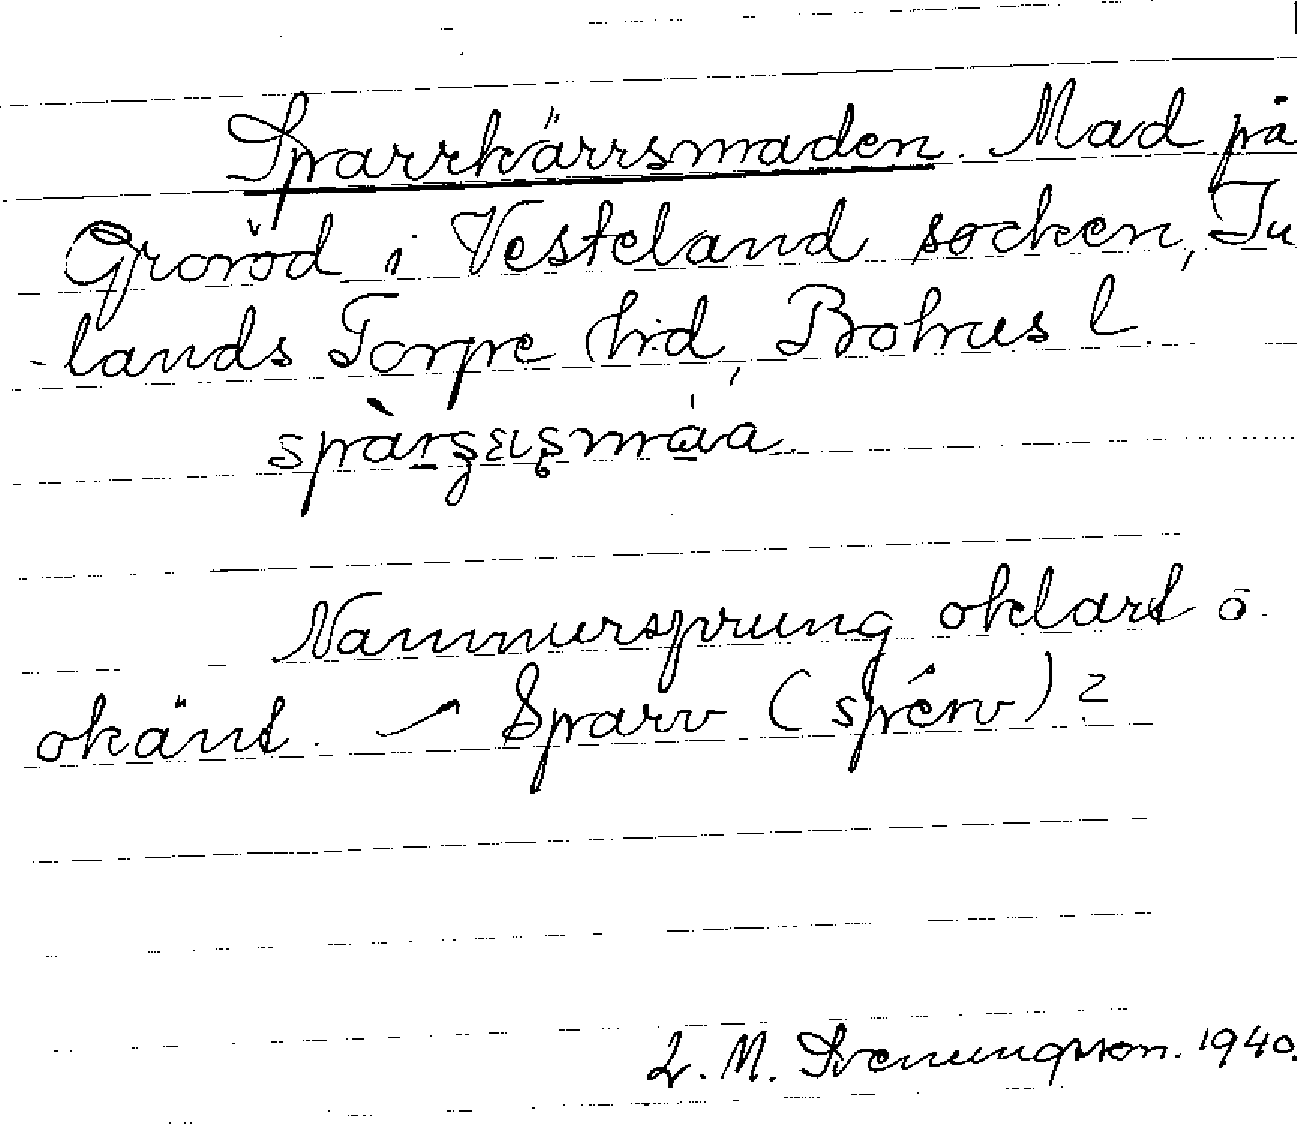 Sparrkärrsmaden. Mad på
Groröd i Vesteland socken, In
-lands Torpe hrd, Bohus l.
Namnursprung oklart o.
okänt. – Sparv (spérv)?
L. M. Svenungsson. 1940.